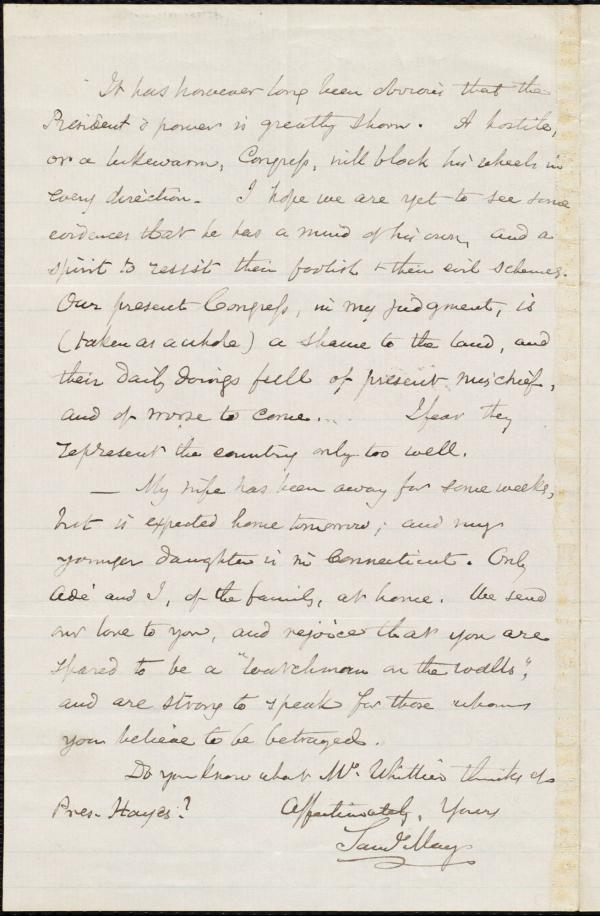 It has however long been obvious that the
President's power is greatly shorn. A hostile,
or a lukewarm, Congress, will block his wheels in
every direction. I hope we are yet to see some
evidences that he has a mind of his own, and a
spirit to resist their foolish & their evil schemes.
Our present Congress, in my judgment, is
(taken as a whole) a shame to the land, and
their daily doings full of present mischief,
and of worse to come... I fear they
represent the country only too well.
— My wife has been away for some weeks,
but is expected home tomorrow; and my
younger daughter is in Connecticut. Only
Adè and I, of the family, at home. We send
our love to you, and rejoice that you are
spared to be a "watchman on the walls",
and are strong to speak for those whom
you believe to be betrayed.
Do you know what Mr. Whittier thinks of
Pres. Hayes? Affectionately, Yours
Saml. May